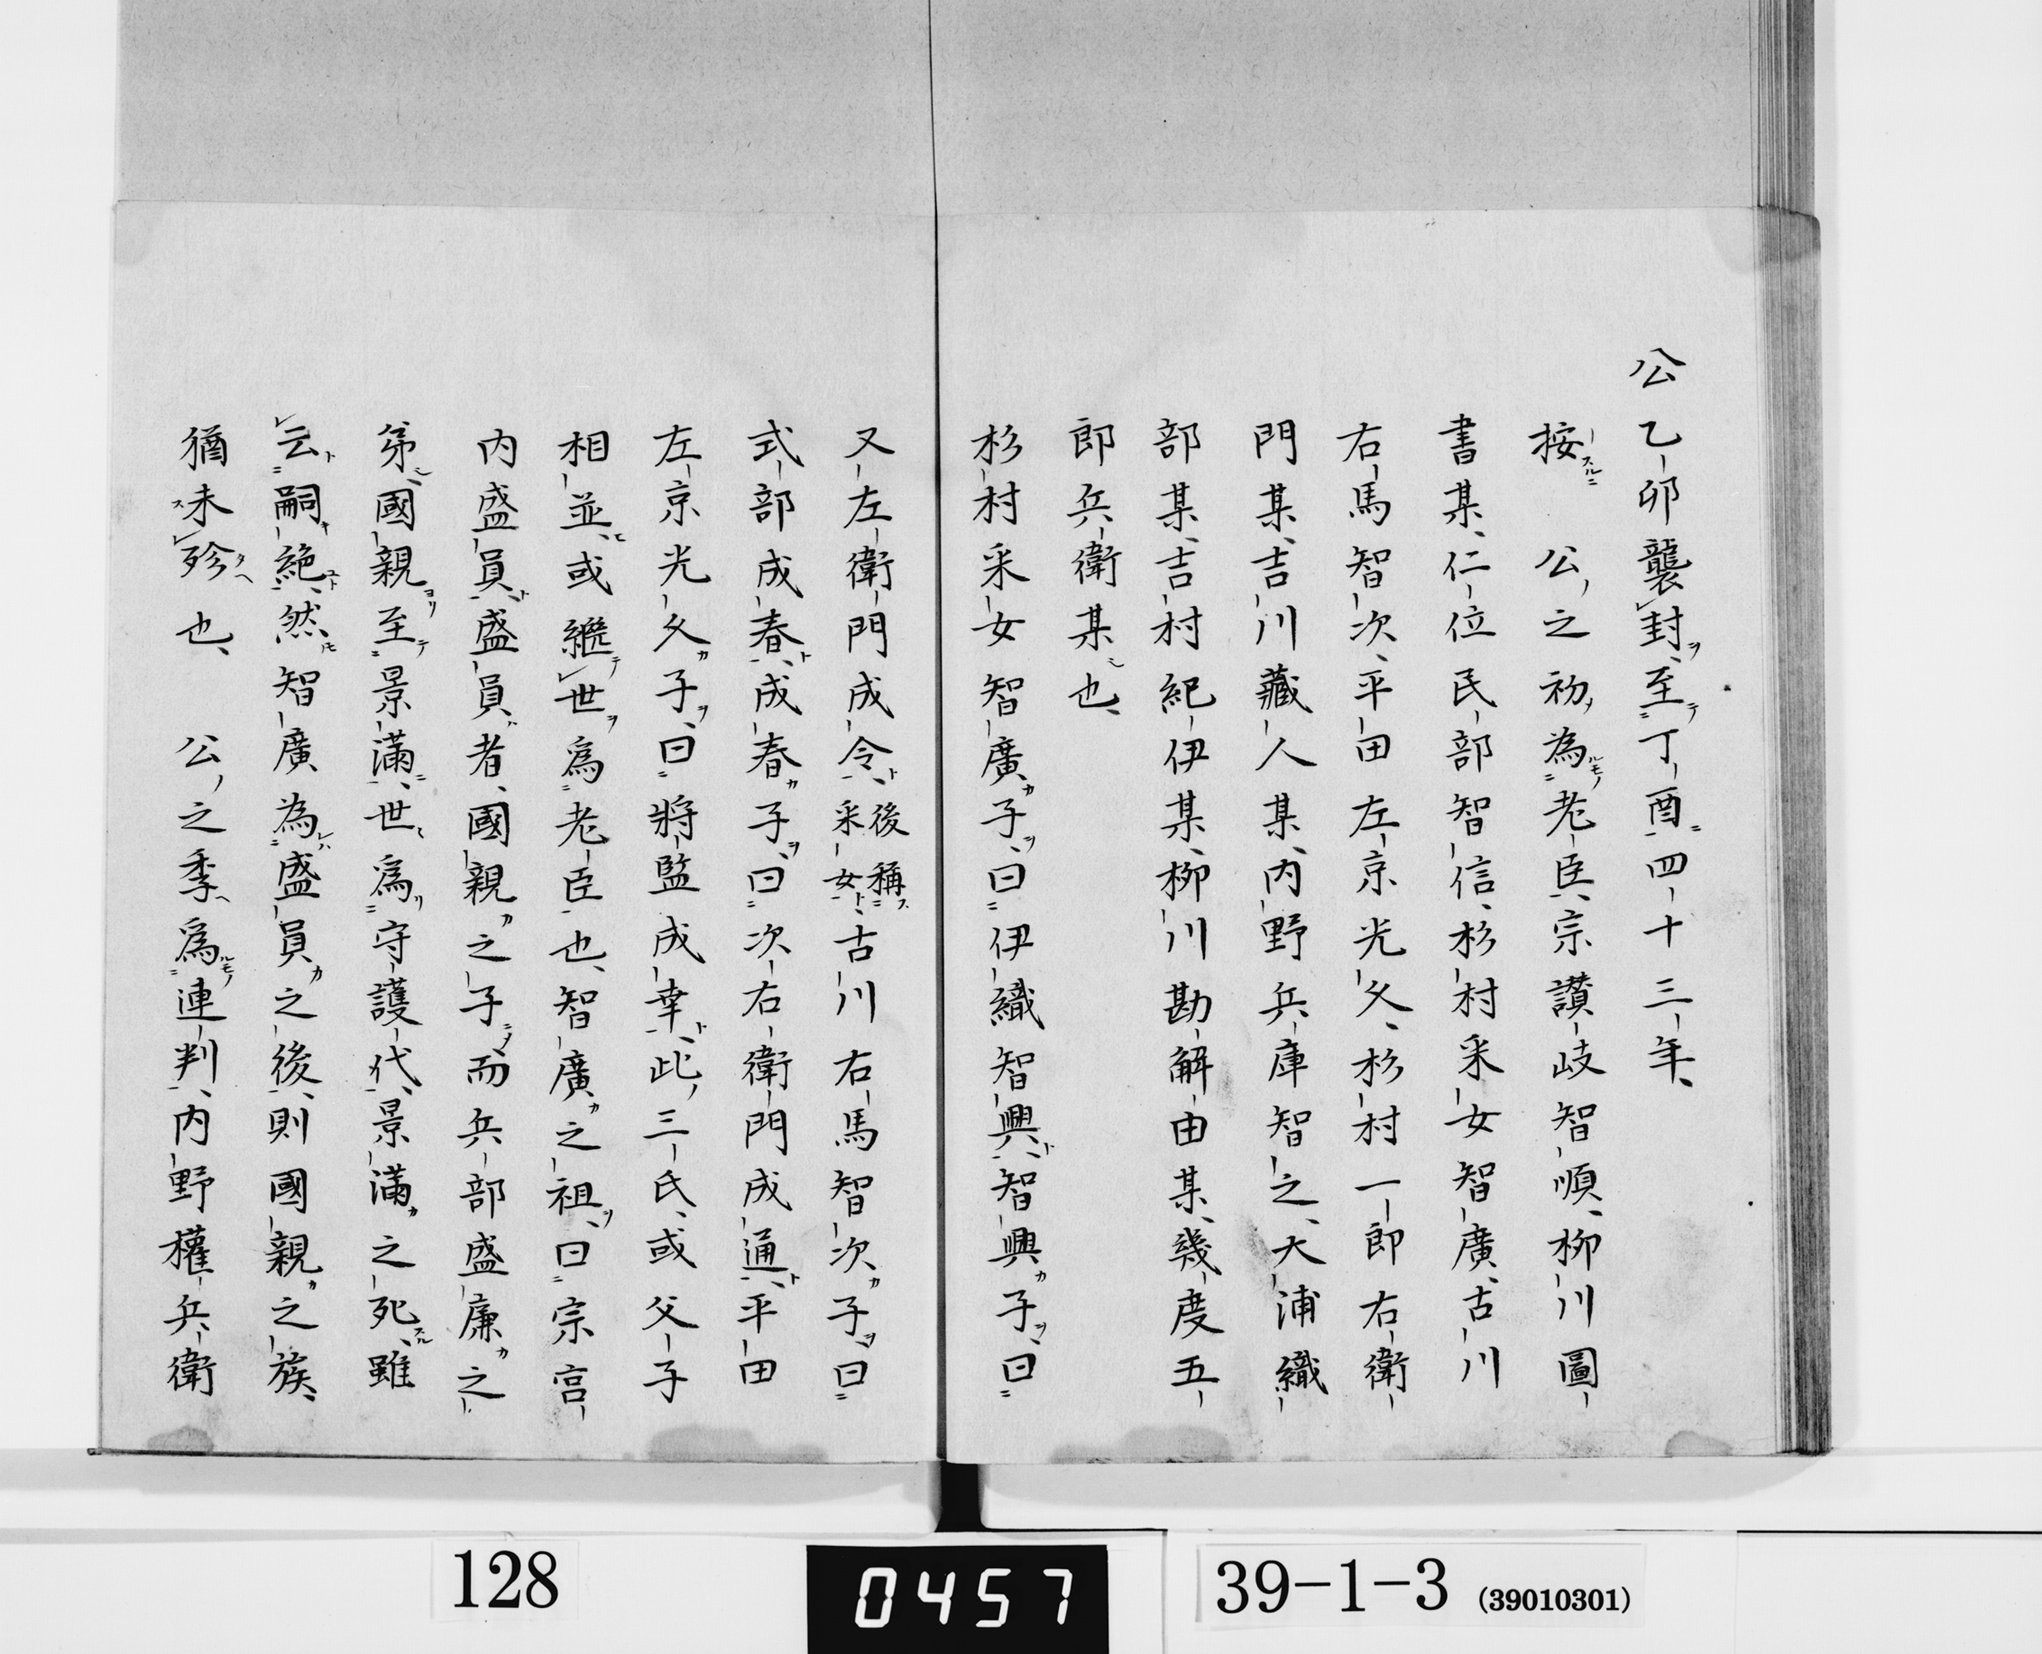 公乙卯襲封至丁酉四十三年
按　公之初為老臣宗讃岐智順柳川圖
書某仁位民部智信杉村采女智廣古川
右馬智次平田左京光久杉村一郎右衛
門某吉川藏人某内野兵庫智之大浦織
部某吉村紀伊某柳川勘解由某幾度五
郎兵衛某也
杉村采女智廣子曰伊織智興智興子曰
又左衛門成令後稱采女古川右馬智次子曰
式部成春成春子曰次右衛門成通平田
左京光久子曰將監成幸此三氏或父子
相並或繼世爲老臣也智廣之祖曰宗宮
内盛員盛員者國親之子而兵部盛廉之
弟國親至景滿世爲守護代景滿之死雖
云嗣絶然智廣為盛員之後則國親之族
猶未殄也　公之季爲連判内野權兵衛
128
0457
39-1-3 (39010301)